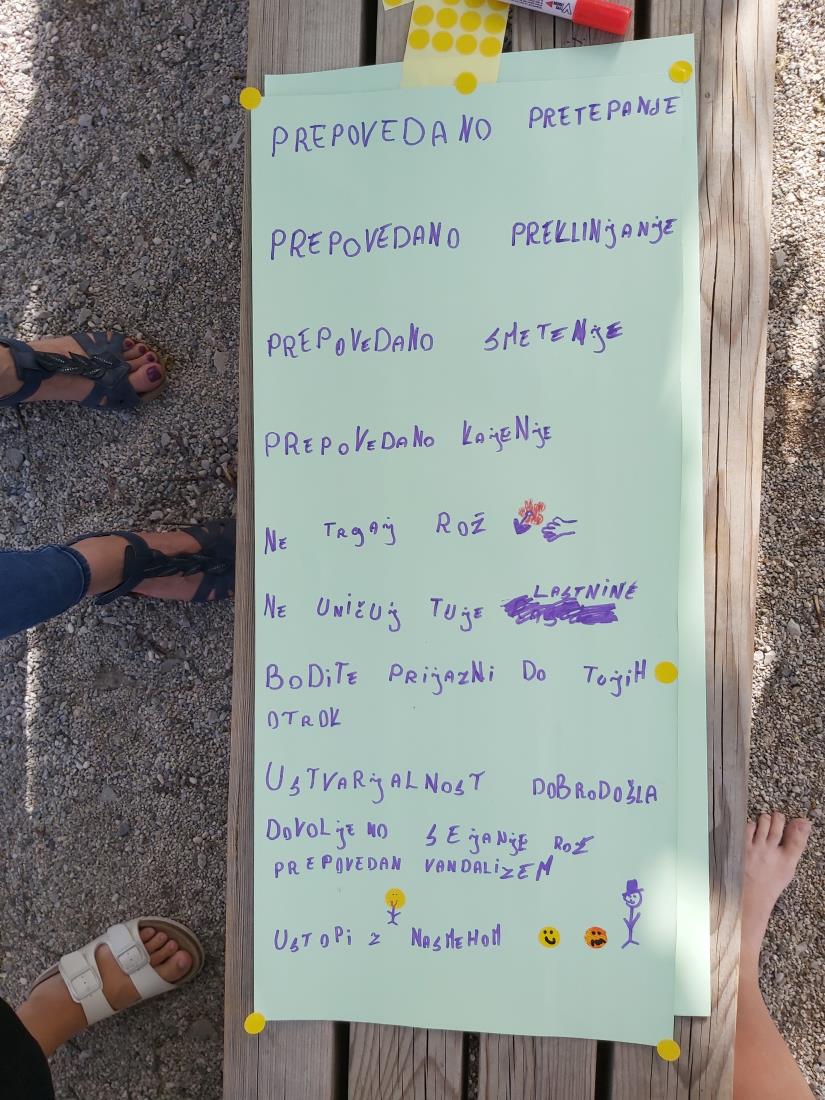 PREPOVEDANO PRETEPANJE
PREPOVEDANO PREKLINjANjE
PREPOVEDANO SMETENjE
PREPOVEDANO KAjENjE
NE TRgAj ROŽ
NE UNiČUj TUjE LASTNINE
BODiTE PRijAZNi DO TUjiH
OTROK
USTVARjALNOST DOBRODOŠLA
DOVOLjENO SEjANjE ROŽ
PREPOVEDAN VANDALiZEM
USTOPi Z NASMEHOM